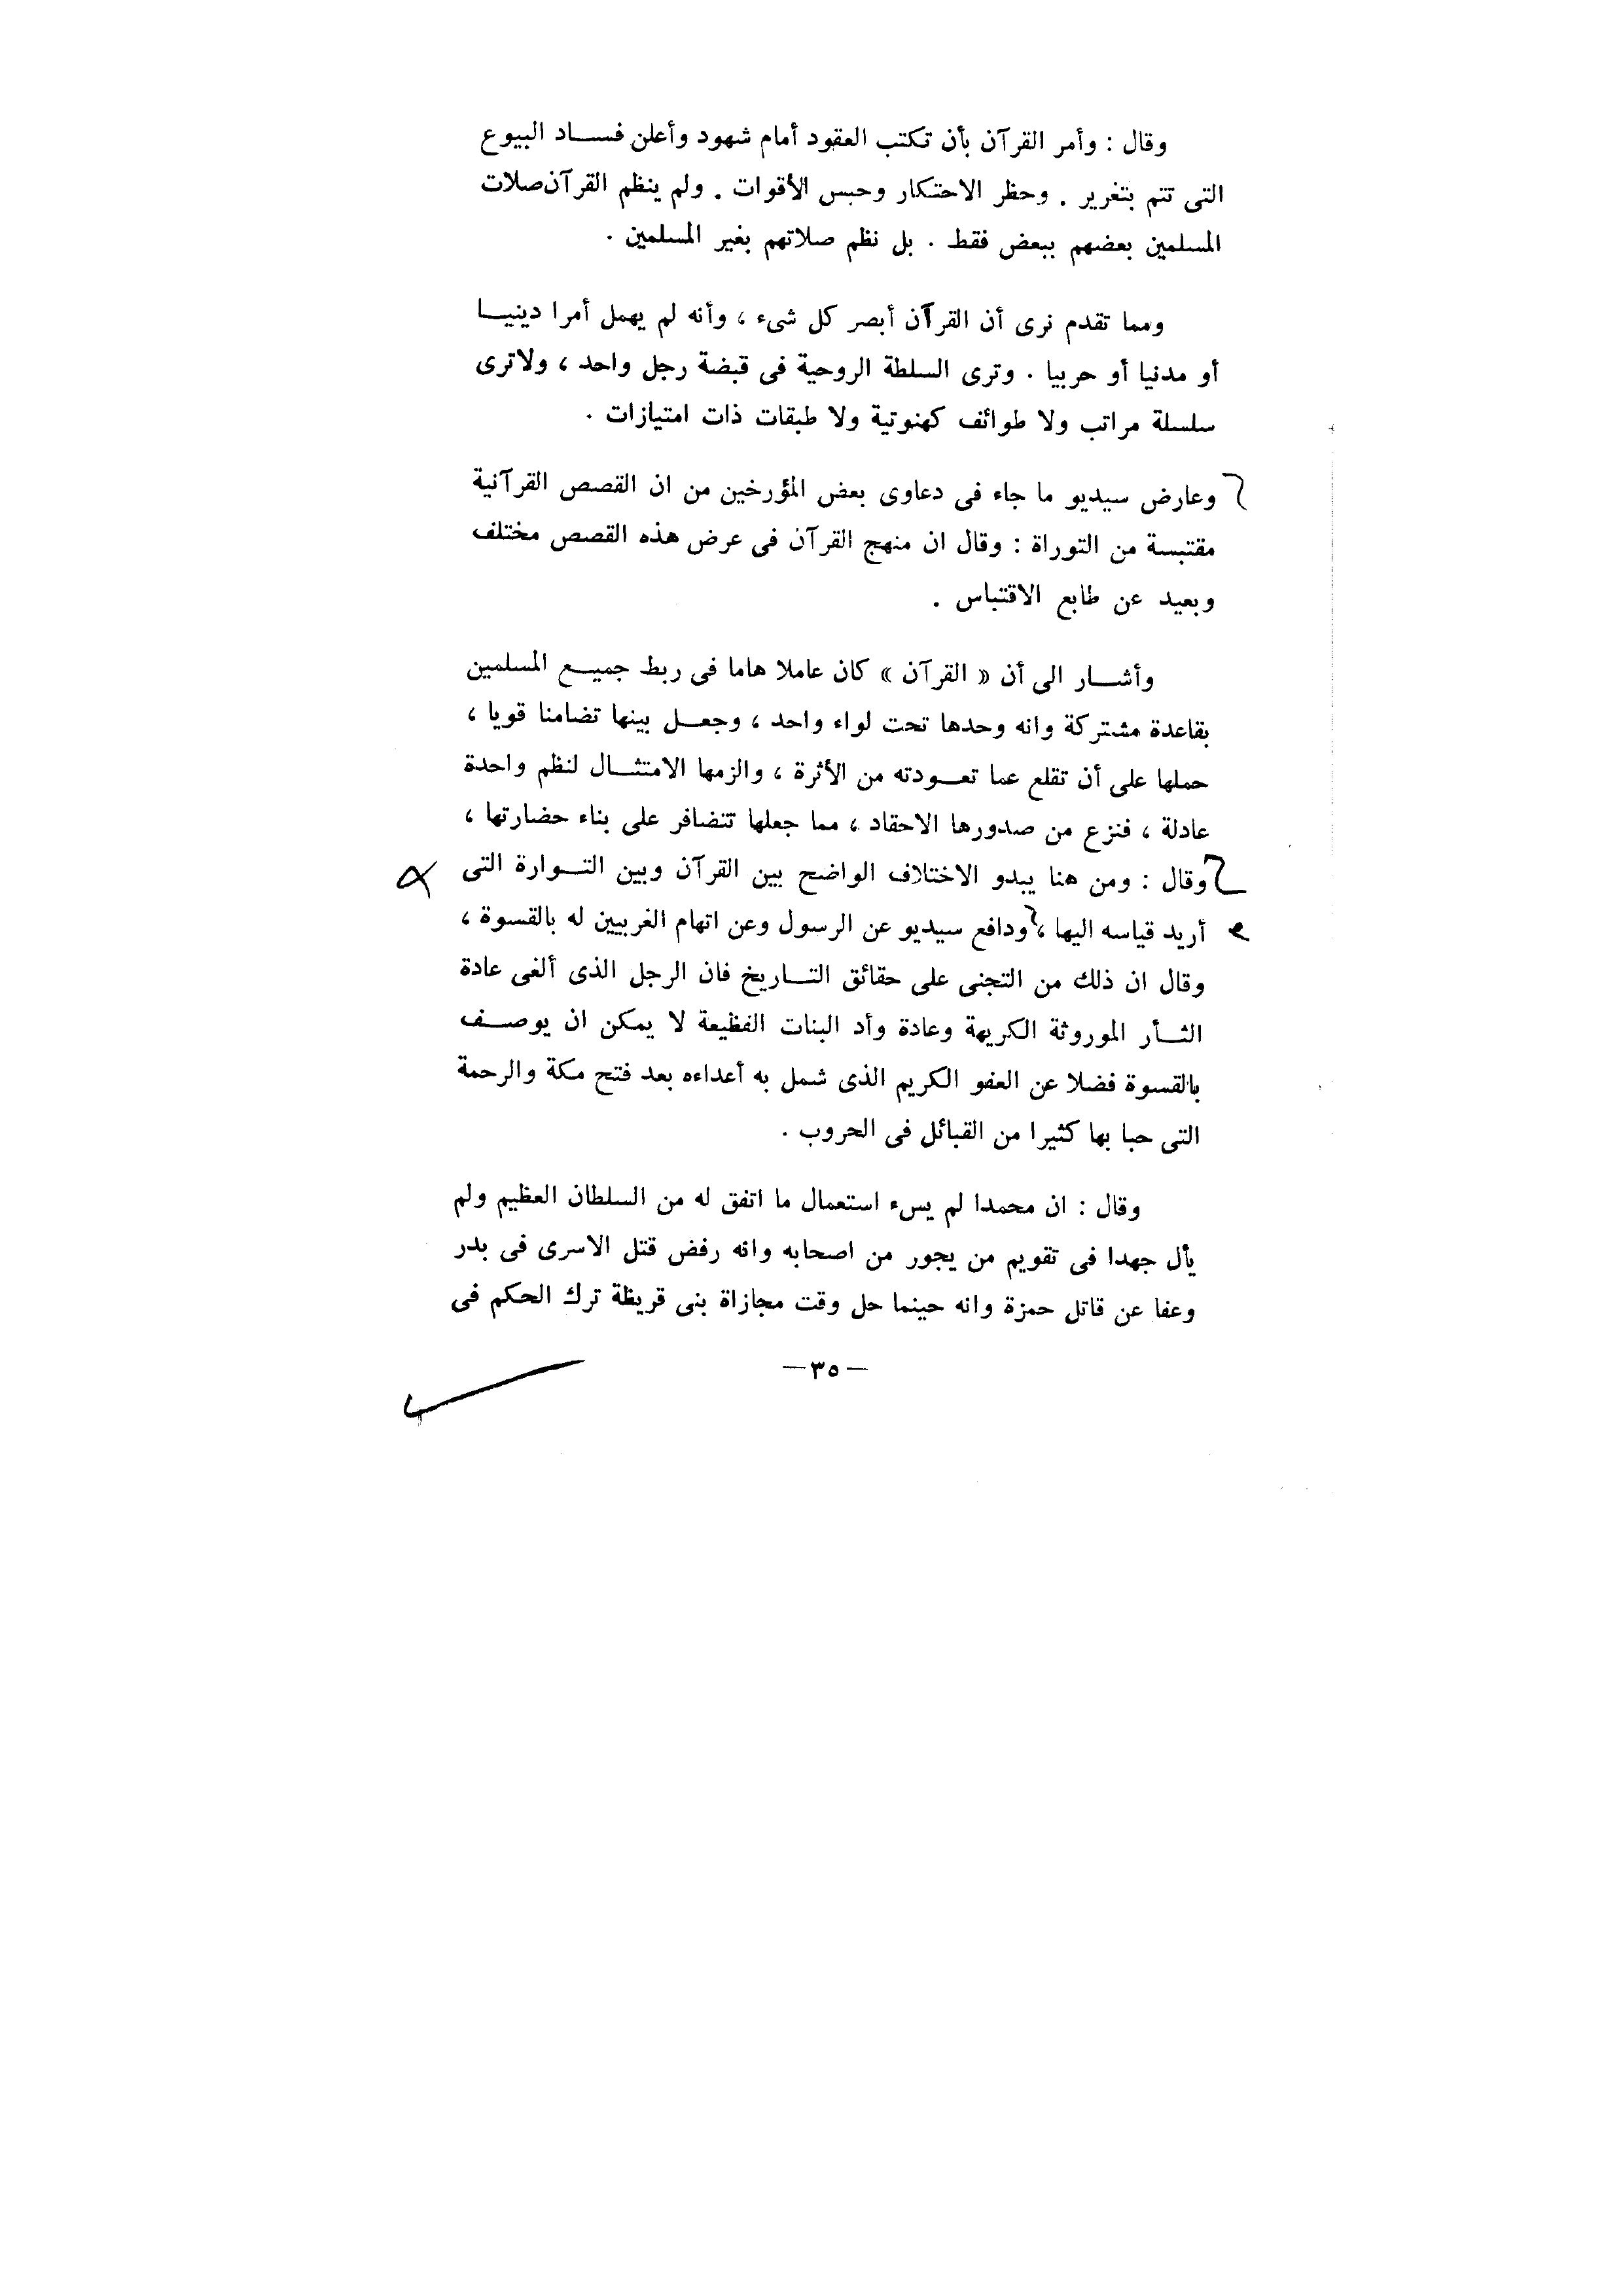 وقال : وأمر القرآن بأن تكتب العقود أمام شهود وأعلن فساد البيوع
التى تتم بتغرير . وحظر الاحتكار وحبس الأقوات . ولم ينظم القرآن صلات
المسلمين بعضهم ببعض فقط . بل نظم صلاتهم بغير المسلمين .
ومما تقدم نرى أن القرآن أبصر كل شىء ، وأنه لم يهمل أمرا دينيا
أو مدنيا أو حربيا . وترى السلطة الروحية فى قبضة رجل واحد ، ولاترى
سلسلة مراتب ولا طوائف كهنوتية ولا طبقات ذات امتيازات .
وعارض سيديو ما جاء فى دعاوى بعض المؤرخين من ان القصص القرآنية
مقتبسة من التوراة : وقال ان منهج القرآن فى عرض هذه القصص مختلف
وبعيد عن طابع الاقتباس .
وأشار الى أن « القرآن » كان عاملا هاما فى ربط جميع المسلمين
بقاعدة مشتركة وانه وحدها تحت لواء واحد ، وجعل بينها تضامنا قويا ،
حملها على أن تقلع عما تعودته من الأثرة ، والزمها الامتثال لنظم واحدة
عادلة ، فنزع من صدورها الاحقاد ، مما جعلها تتضافر على بناء حضارتها ،
وقال : ومن هنا يبدو الاختلاف الواضح بين القرآن وبين التوارة التى
أريد قياسه اليها ، ودافع سيديو عن الرسول وعن اتهام الغربيين له بالقسوة ،
وقال ان ذلك من التجنى على حقائق التاريخ فان الرجل الذى ألغى عادة
الثأر الموروثة الكريهة وعادة وأد البنات الفظيعة لا يمكن ان يوصف
بالقسوة فضلا عن العفو الكريم الذى شمل به أعداءه بعد فتح مكة والرحمة
التى حبا بها كثيرا من القبائل فى الحروب .
وقال : ان محمدا لم يسء استعمال ما اتفق له من السلطان العظيم ولم
يأل جهدا فى تقويم من يجور من اصحابه وانه رفض قتل الاسرى فى بدر
وعفا عن قاتل حمزة وانه حينما حل وقت مجازاة بنى قريظة ترك الحكم فى
— ٣٥ —